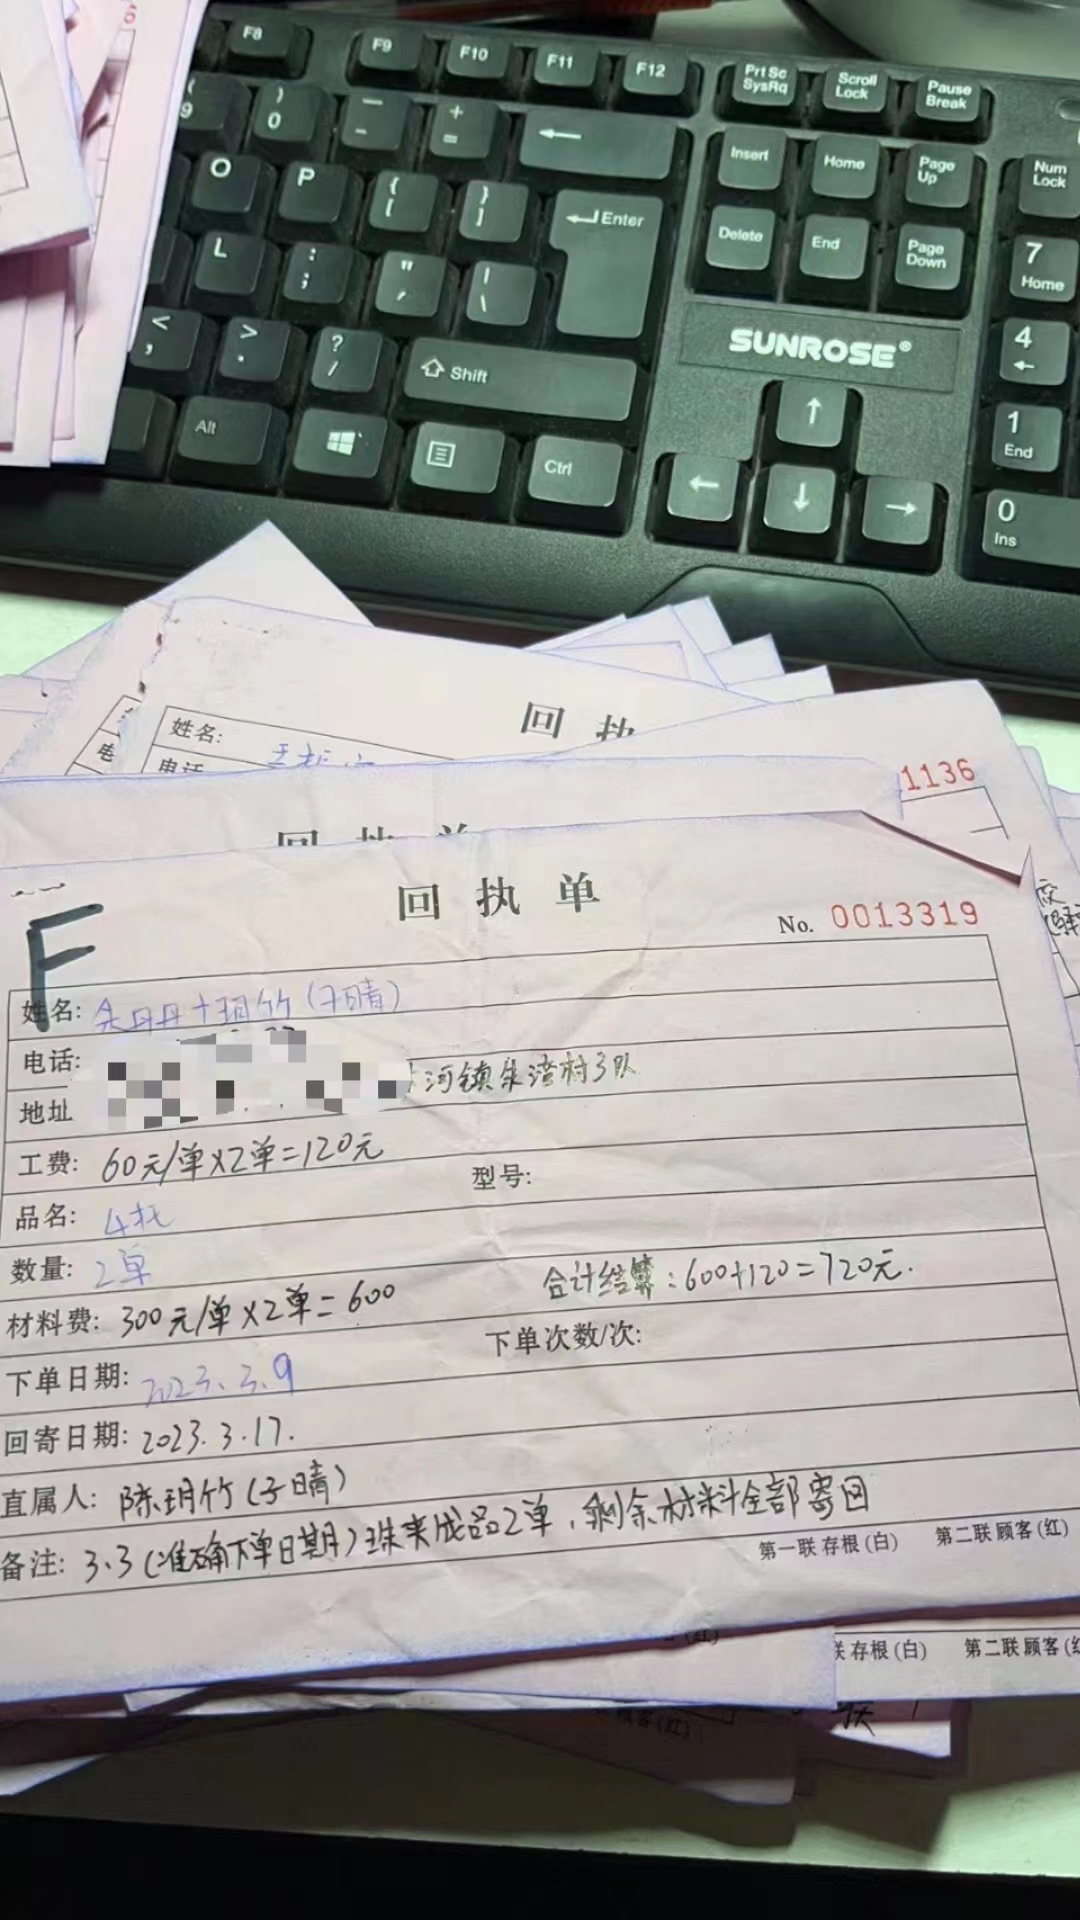 F8 F9 F10 F11 F12 Prt Sc SysRq Scroll Lock Pause Break
( 9 ) 0 — - + = Insert Home Page Up Num Lock
O P { [ } ] Enter Delete End Page Down 7 Home
L : ; " , | \ SUNROSE® 4
< , > . ? / Shift 1 End
Alt Ctrl 0 Ins
回执
姓名:
电话
1136
回执单
F
回执单
No. 0013319
姓名: 朱丹丹+玥竹(子晴)
电话:
地址 河镇朱湾村3队
工费: 60元/单×2单=120元
型号:
品名: 4托
数量: 2单
合计结算:600+120=720元.
材料费: 300元/单×2单=600
下单次数/次:
下单日期: 2023.3.9
回寄日期: 2023.3.17.
直属人: 陈玥竹(子晴)
备注: 3.3(准确下单日期)珠夹成品2单,剩余材料全部寄回
第一联 存根(白) 第二联 顾客(红)
联 存根(白) 第二联 顾客(红